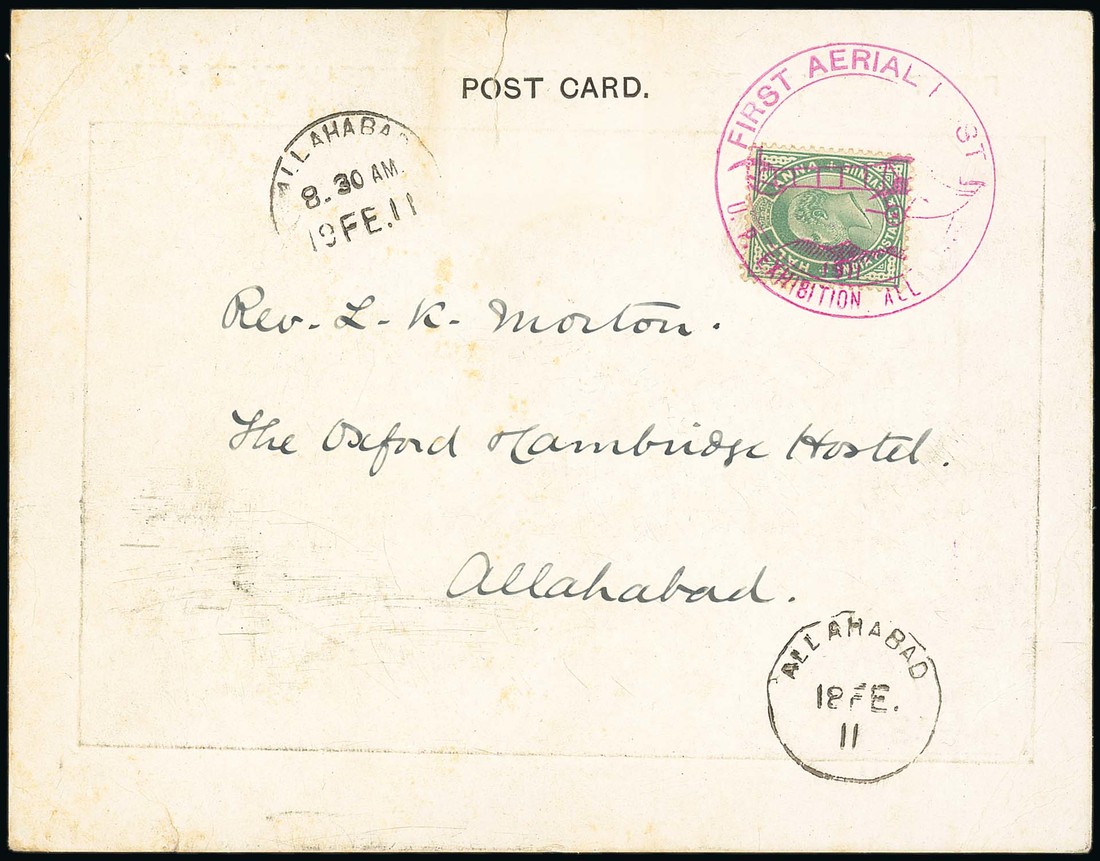 POST CARD.
FIRST AERIAL
U.P. EXHIBITION ALL
1911
HALF ANNA
ALLAHABAD
8.30 AM.
19 FE.11
Rev. L. K. Morton.
The Oxford & Cambridge Hostel.
Allahabad.
ALLAHABAD
18 FE.
11